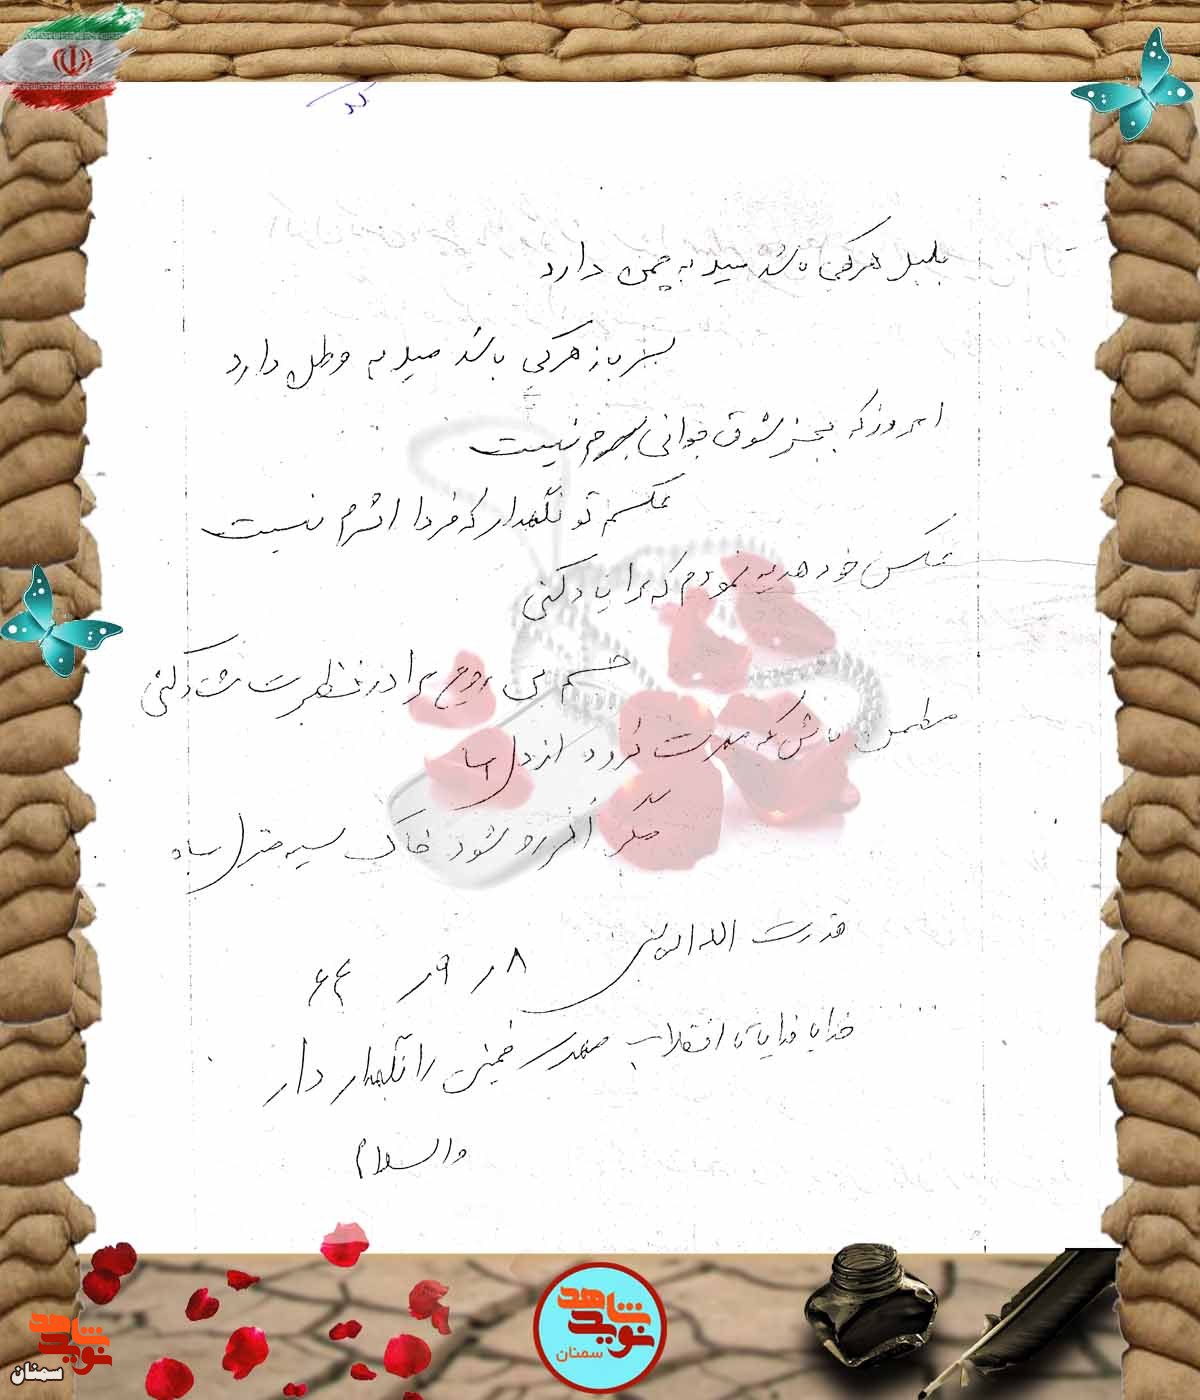 بلبل هر کجا باشد میل به چمن دارد
سرباز هر کجا باشد میل به وطن دارد
امروز که بجز شوق جوانی بسرم نیست
عکسم تو نگهدار که فردا اثرم نیست
عکس خود هدیه نمودم که مرا یاد کنی
جسم بی روح مرا در نظرت شاد کنی
مطمئن باش که مهرت نرود از دل ما
مگر آنکه رود شود خاک سیه منزل ما
قدرت اله
۸ ر ۹ ر ۶۴
خدایا خدایا تا انقلاب مهدی خمینی را نگهدار
والسلام
نوید شاهد
سمنان
نوید شاهد
سمنان